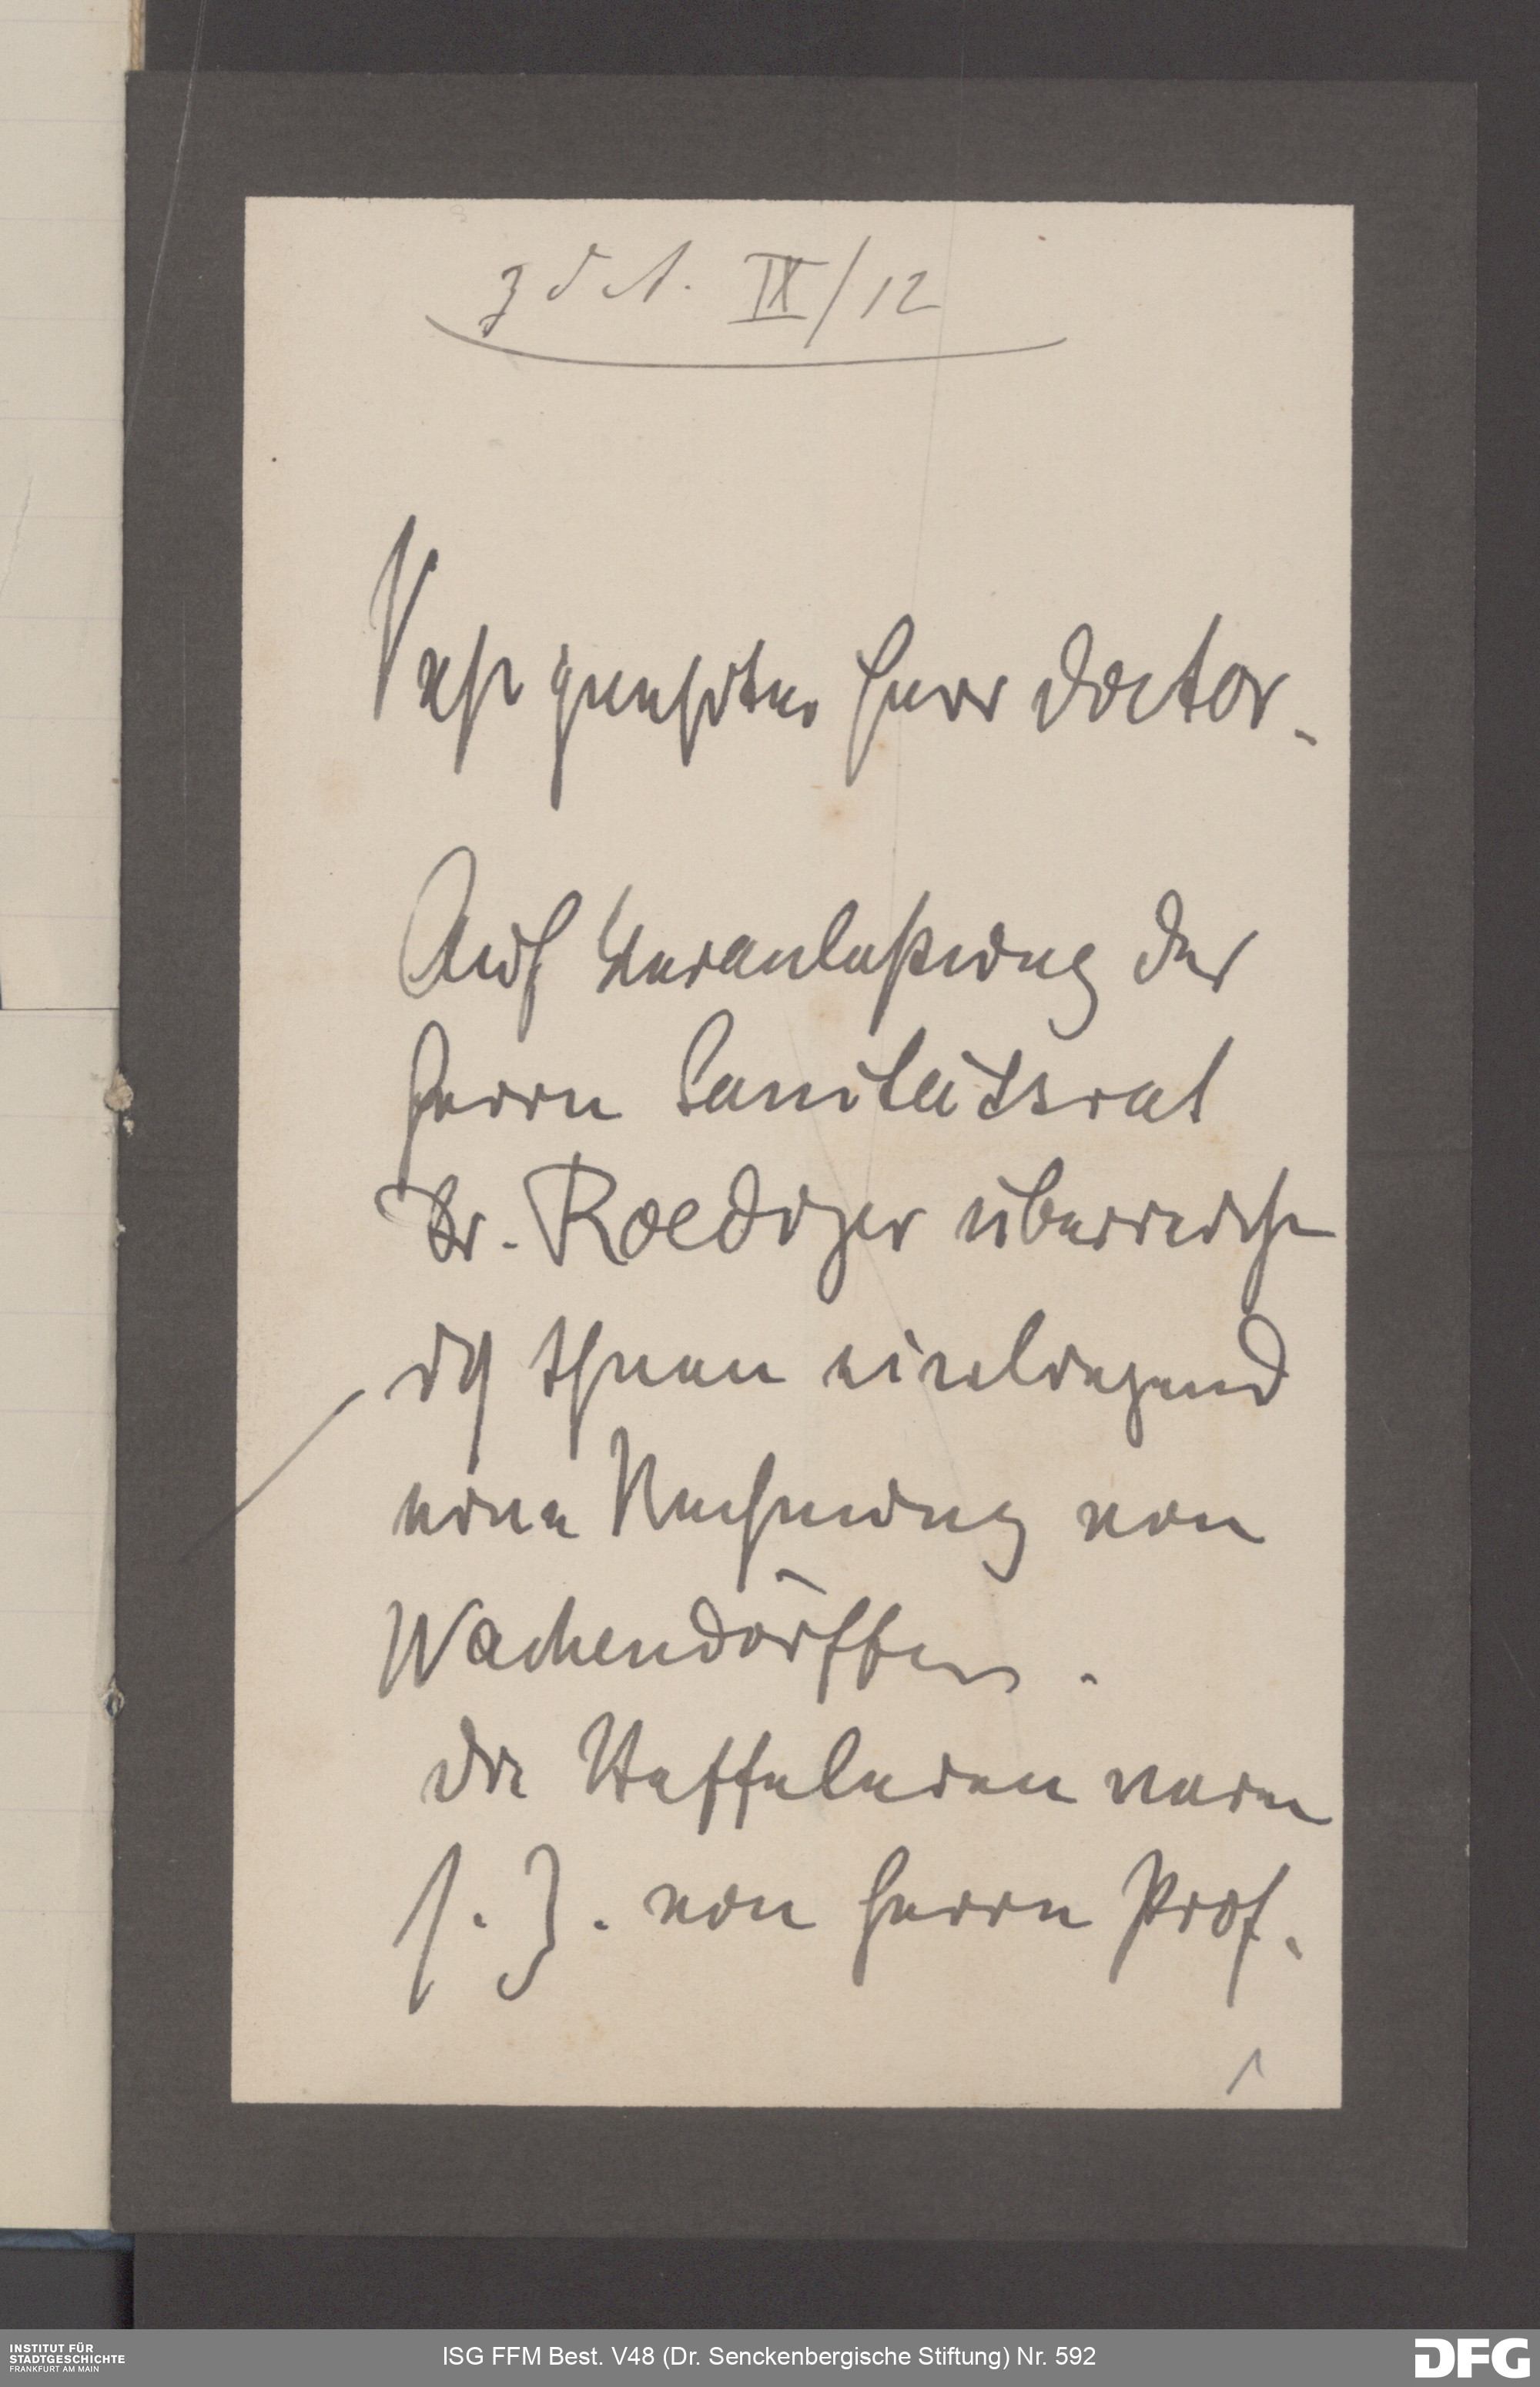 z d A. IX/12
Sehr geehrter Herr Doctor.
Auf Veranlaßung des
Herrn Sanitätsrat
Dr. Roediger überreiche
ich Ihnen einliegend
eine Rechnung von
Wachendörffer.
Die Staffeleien waren
s. Z. von Herrn Prof.
INSTITUT FÜR
STADTGESCHICHTE
FRANKFURT AM MAIN
ISG FFM Best. V48 (Dr. Senckenbergische Stiftung) Nr. 592
DFG